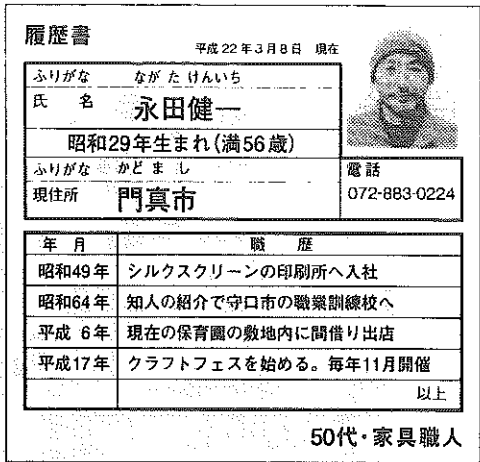 履歴書
平成22年3月8日 現在
ふりがな ながた けんいち
氏 名 永田健一
昭和29年生まれ(満56歳)
ふりがな かどまし
現住所 門真市
電話
072-883-0224
年 月 職 歴
昭和49年 シルクスクリーンの印刷所へ入社
昭和64年 知人の紹介で守口市の職業訓練校へ
平成 6年 現在の保育園の敷地内に間借り出店
平成17年 クラフトフェスを始める。毎年11月開催
以上
50代・家具職人